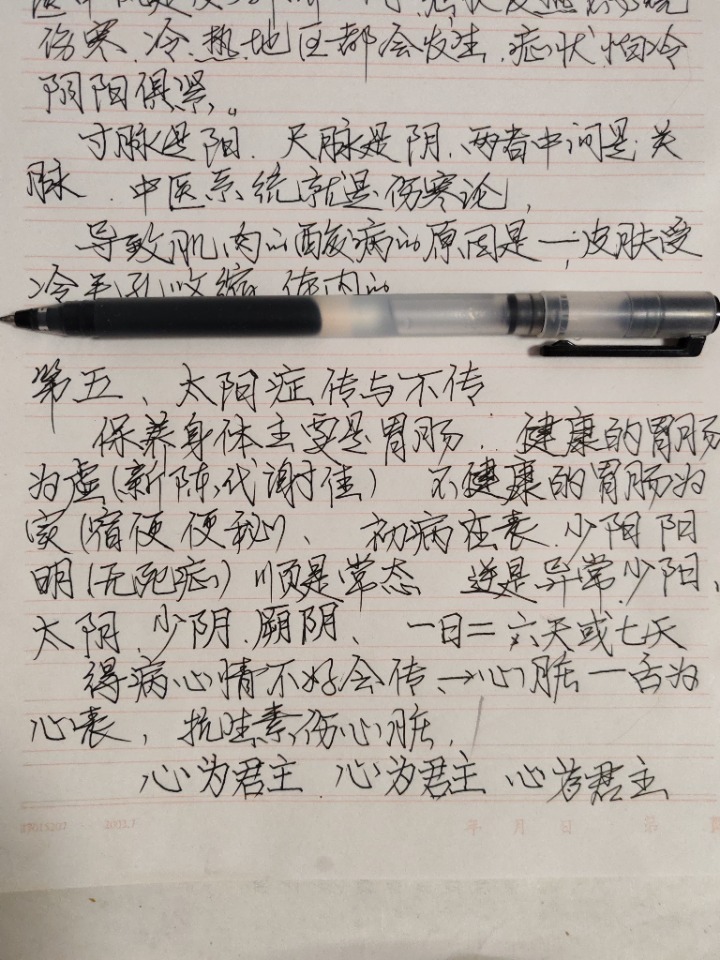 伤寒.冷.热.地区都会发生.症状怕冷
阴阳俱紧。
寸脉是阳.尺脉是阴.两者中间是关
脉.中医系统就是伤寒论,
导致肌肉的酸病的原因是一,皮肤受
冷毛孔收缩.体内的
第五、太阳症传与不传
保养身体主要是胃肠.健康的胃肠
为虚(新陈代谢佳) 不健康的胃肠为
实(宿便便秘)、初病在表.少阳阳
明(无死症)顺是常态 逆是异常.少阳、
太阴.少阴.厥阴、一日=六天或七天
得病心情不好会传、→心脏一舌为
心表,抗生素伤心脏.
心为君主.心为君主 心为君主
年 月 日 第